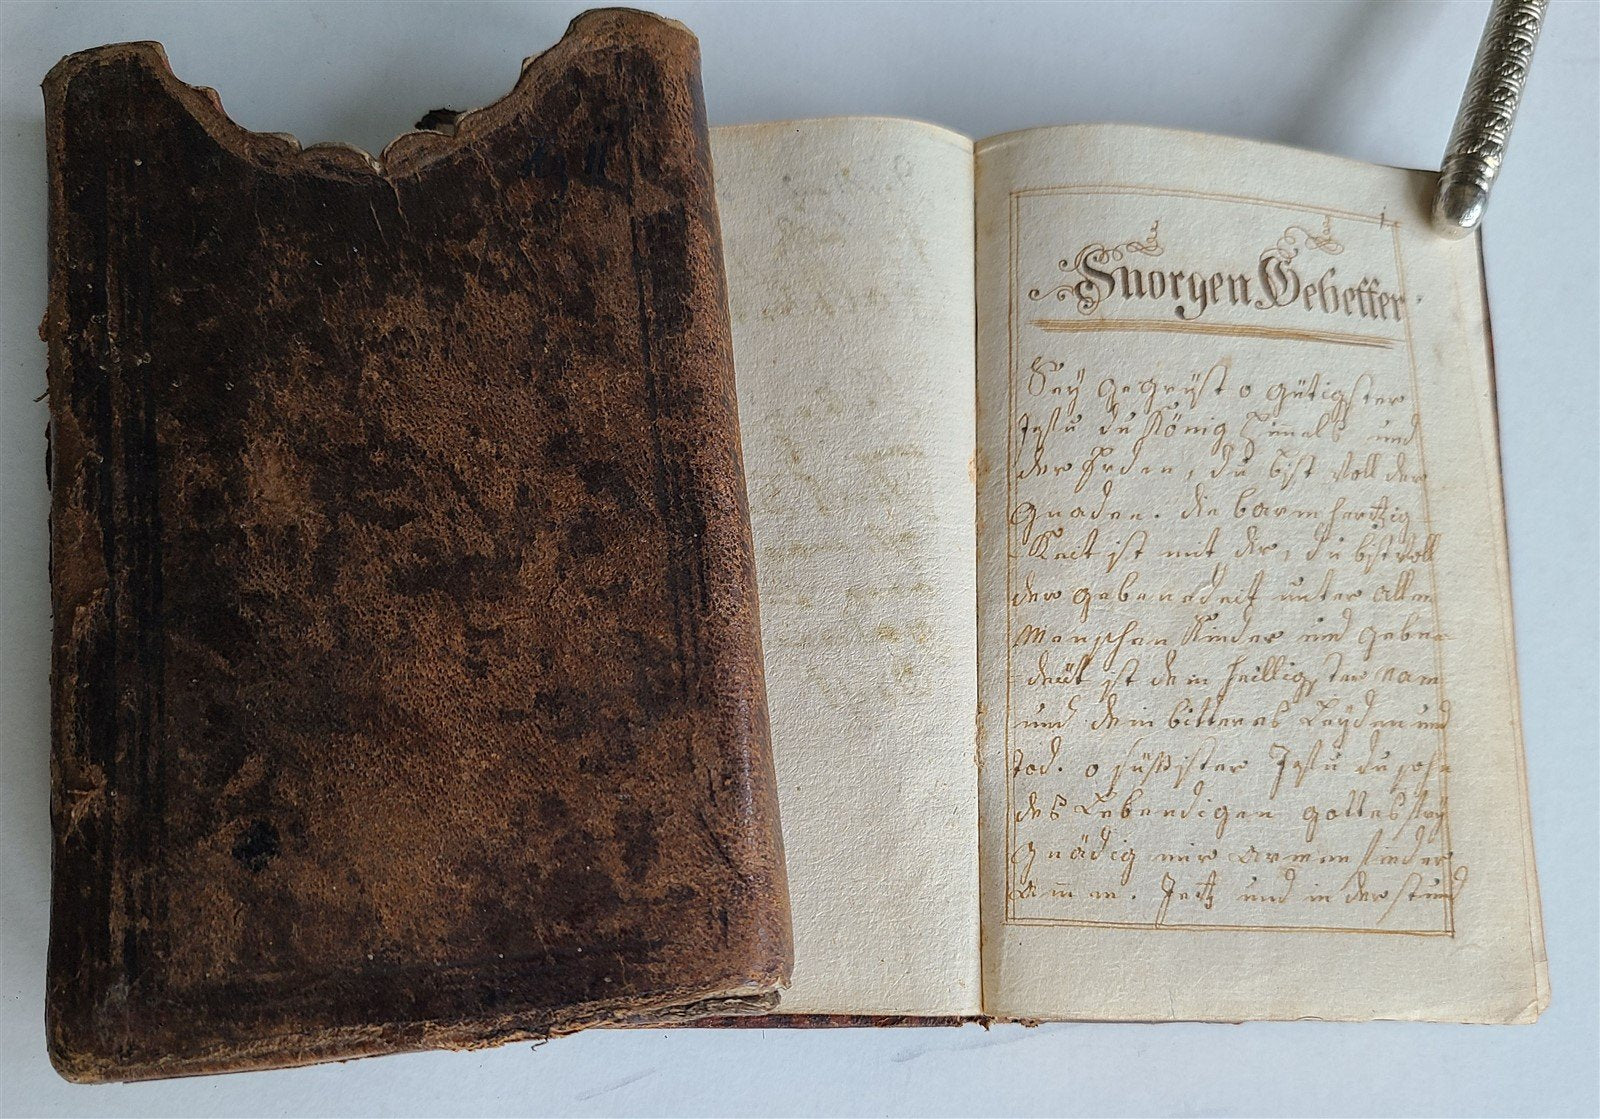 1.
Morgen Gebetter
Seÿ gegrüst o gütigster
Jesu du König Himels und
der Erden, du bist voll der
Gnaden. die barmhertzig
Keit ist mit dir, du bist voll
der gebenedeit unter allen
Menschen Kinder und gebene
deüt ist dein heilligster nam
und dein bitteres Leÿden und
tod. o süssister Jesu du sohn
des Lebendigen gottes seÿ
gnädig mir armen sinder
amen. Jetz und in der stund